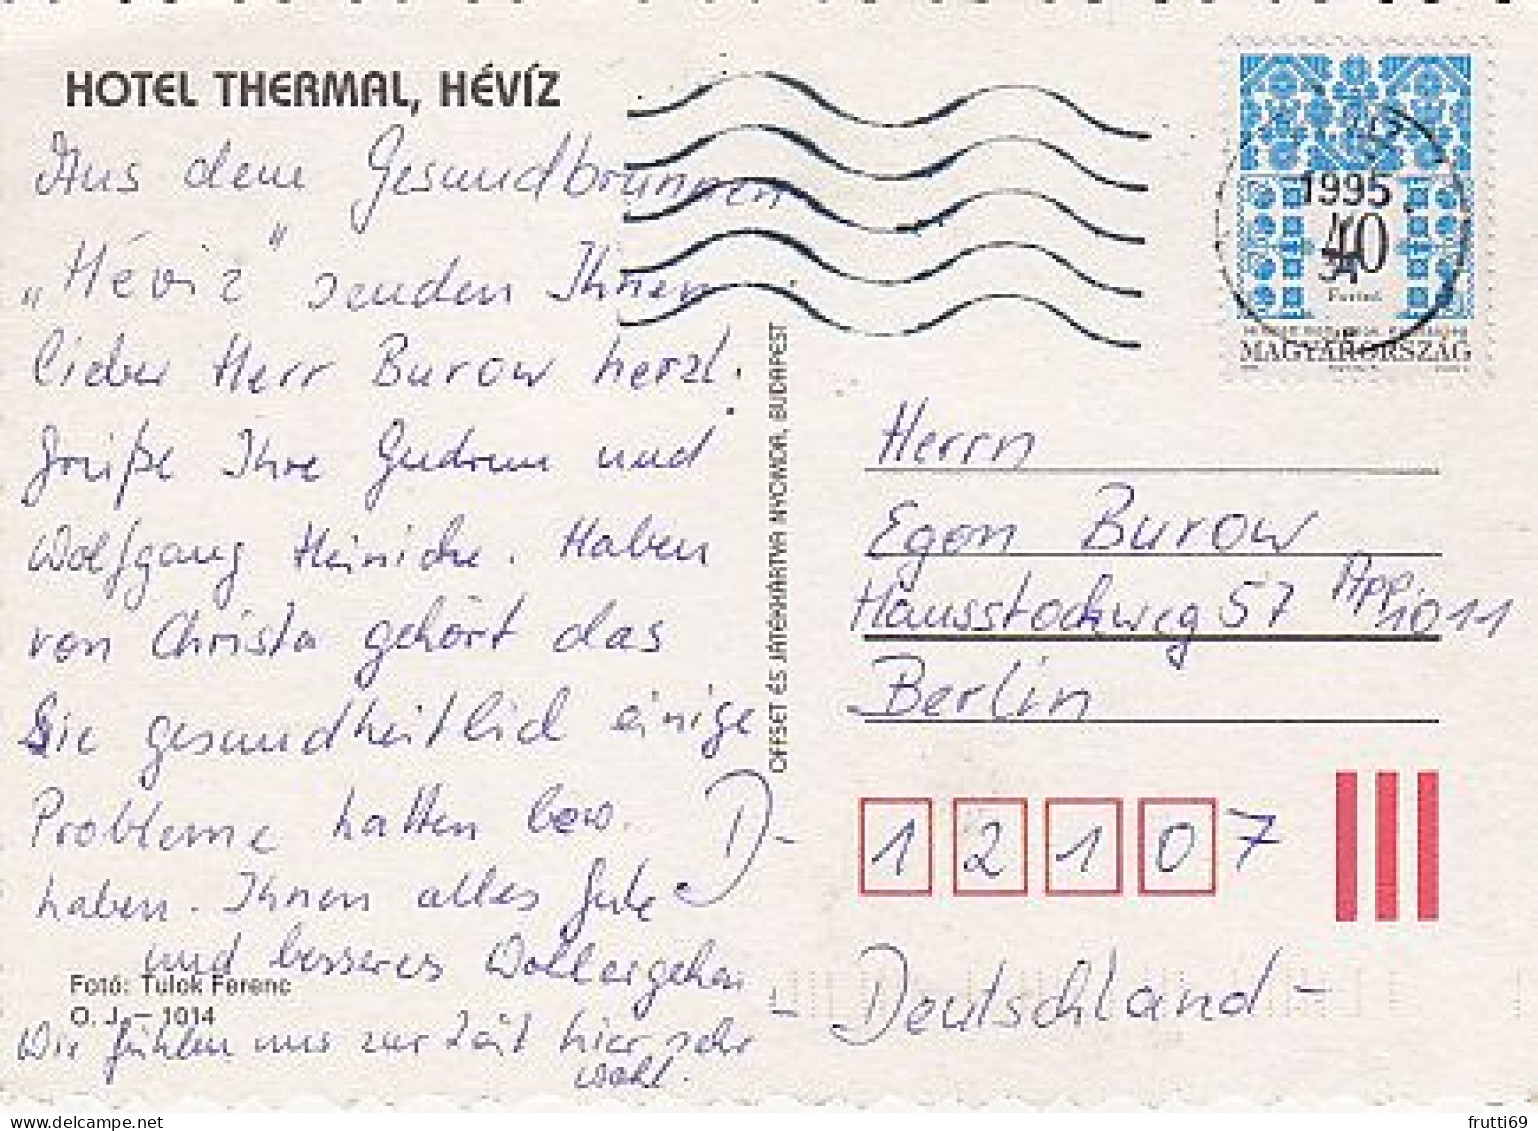 HOTEL THERMAL, HÉVÍZ
Aus dem Gesundbrunnen
„Héviz" senden Ihnen
lieber Herr Burow herzl.
Grüße Ihre Gudrun und
Wolfgang Heinicke. Haben
von Christa gehört das
Sie gesundheitlich einige
Probleme hatten bzw.
haben. Ihnen alles Gute
und besseres Wohlergehen
Wir fühlen uns zur Zeit hier sehr
wohl.
Fotó: Tulok Ferenc
O. J. – 1014
OFFSET ÉS JÁTÉKKÁRTYA NYOMDA, BUDAPEST
1995
40
Forint
MAGYARORSZÁG
Herrn
Egon Burow
Hausstockweg 57 App. 1011
Berlin
D-12107
Deutschland -
frutti69